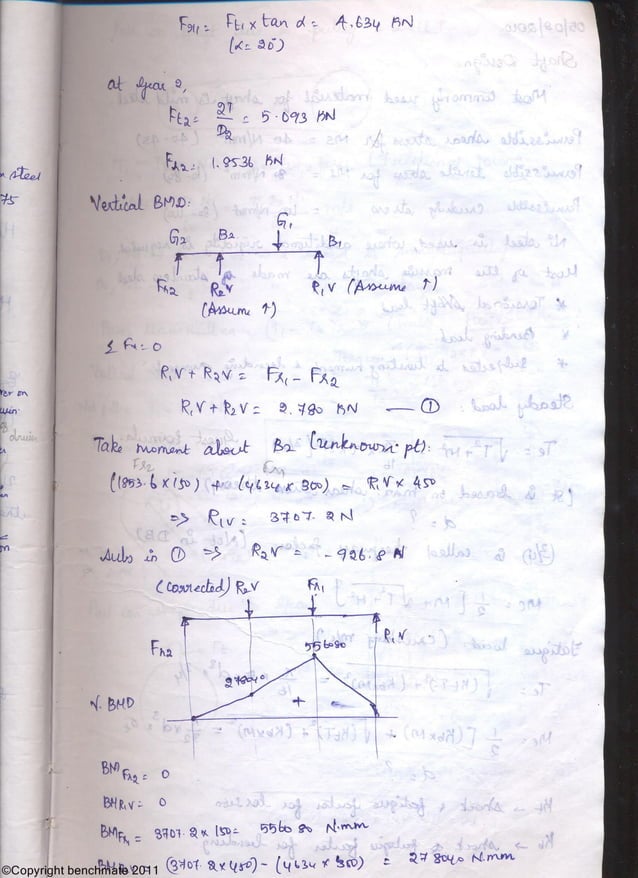 Fr1 = Ft1 x tan α = 4.634 KN
(α = 20°)
at Gear 2,
Ft2 = 2T / D2 = 5.093 KN
Fr2 = 1.8536 KN
n steel
75
Vertical BMD:
G1
G2 B2 B1
Fr2 R2V R1V (Assume ↑)
(Assume ↑)
Σ Fv = 0
R1V + R2V = Fr1 - Fr2
R1V + R2V = 2.780 KN — ①
Take moment about B2 (unknown pt):
Fr2
(1853.6 x 150) + (4634 x 300) = R1V x 450
=> R1V = 3707.2 N
Subs in ① => R2V = -926.8 N
(corrected) R2V Fr1
Fr2 R1V
556080
278040
V. BMD
+
BM Fr2 = 0
BM R1V = 0
BM Fr1 = 3707.2 x 150 = 556080 N.mm
(3707.2 x 450) - (4634 x 300) = 278040 N.mm
©Copyright benchmate 2011